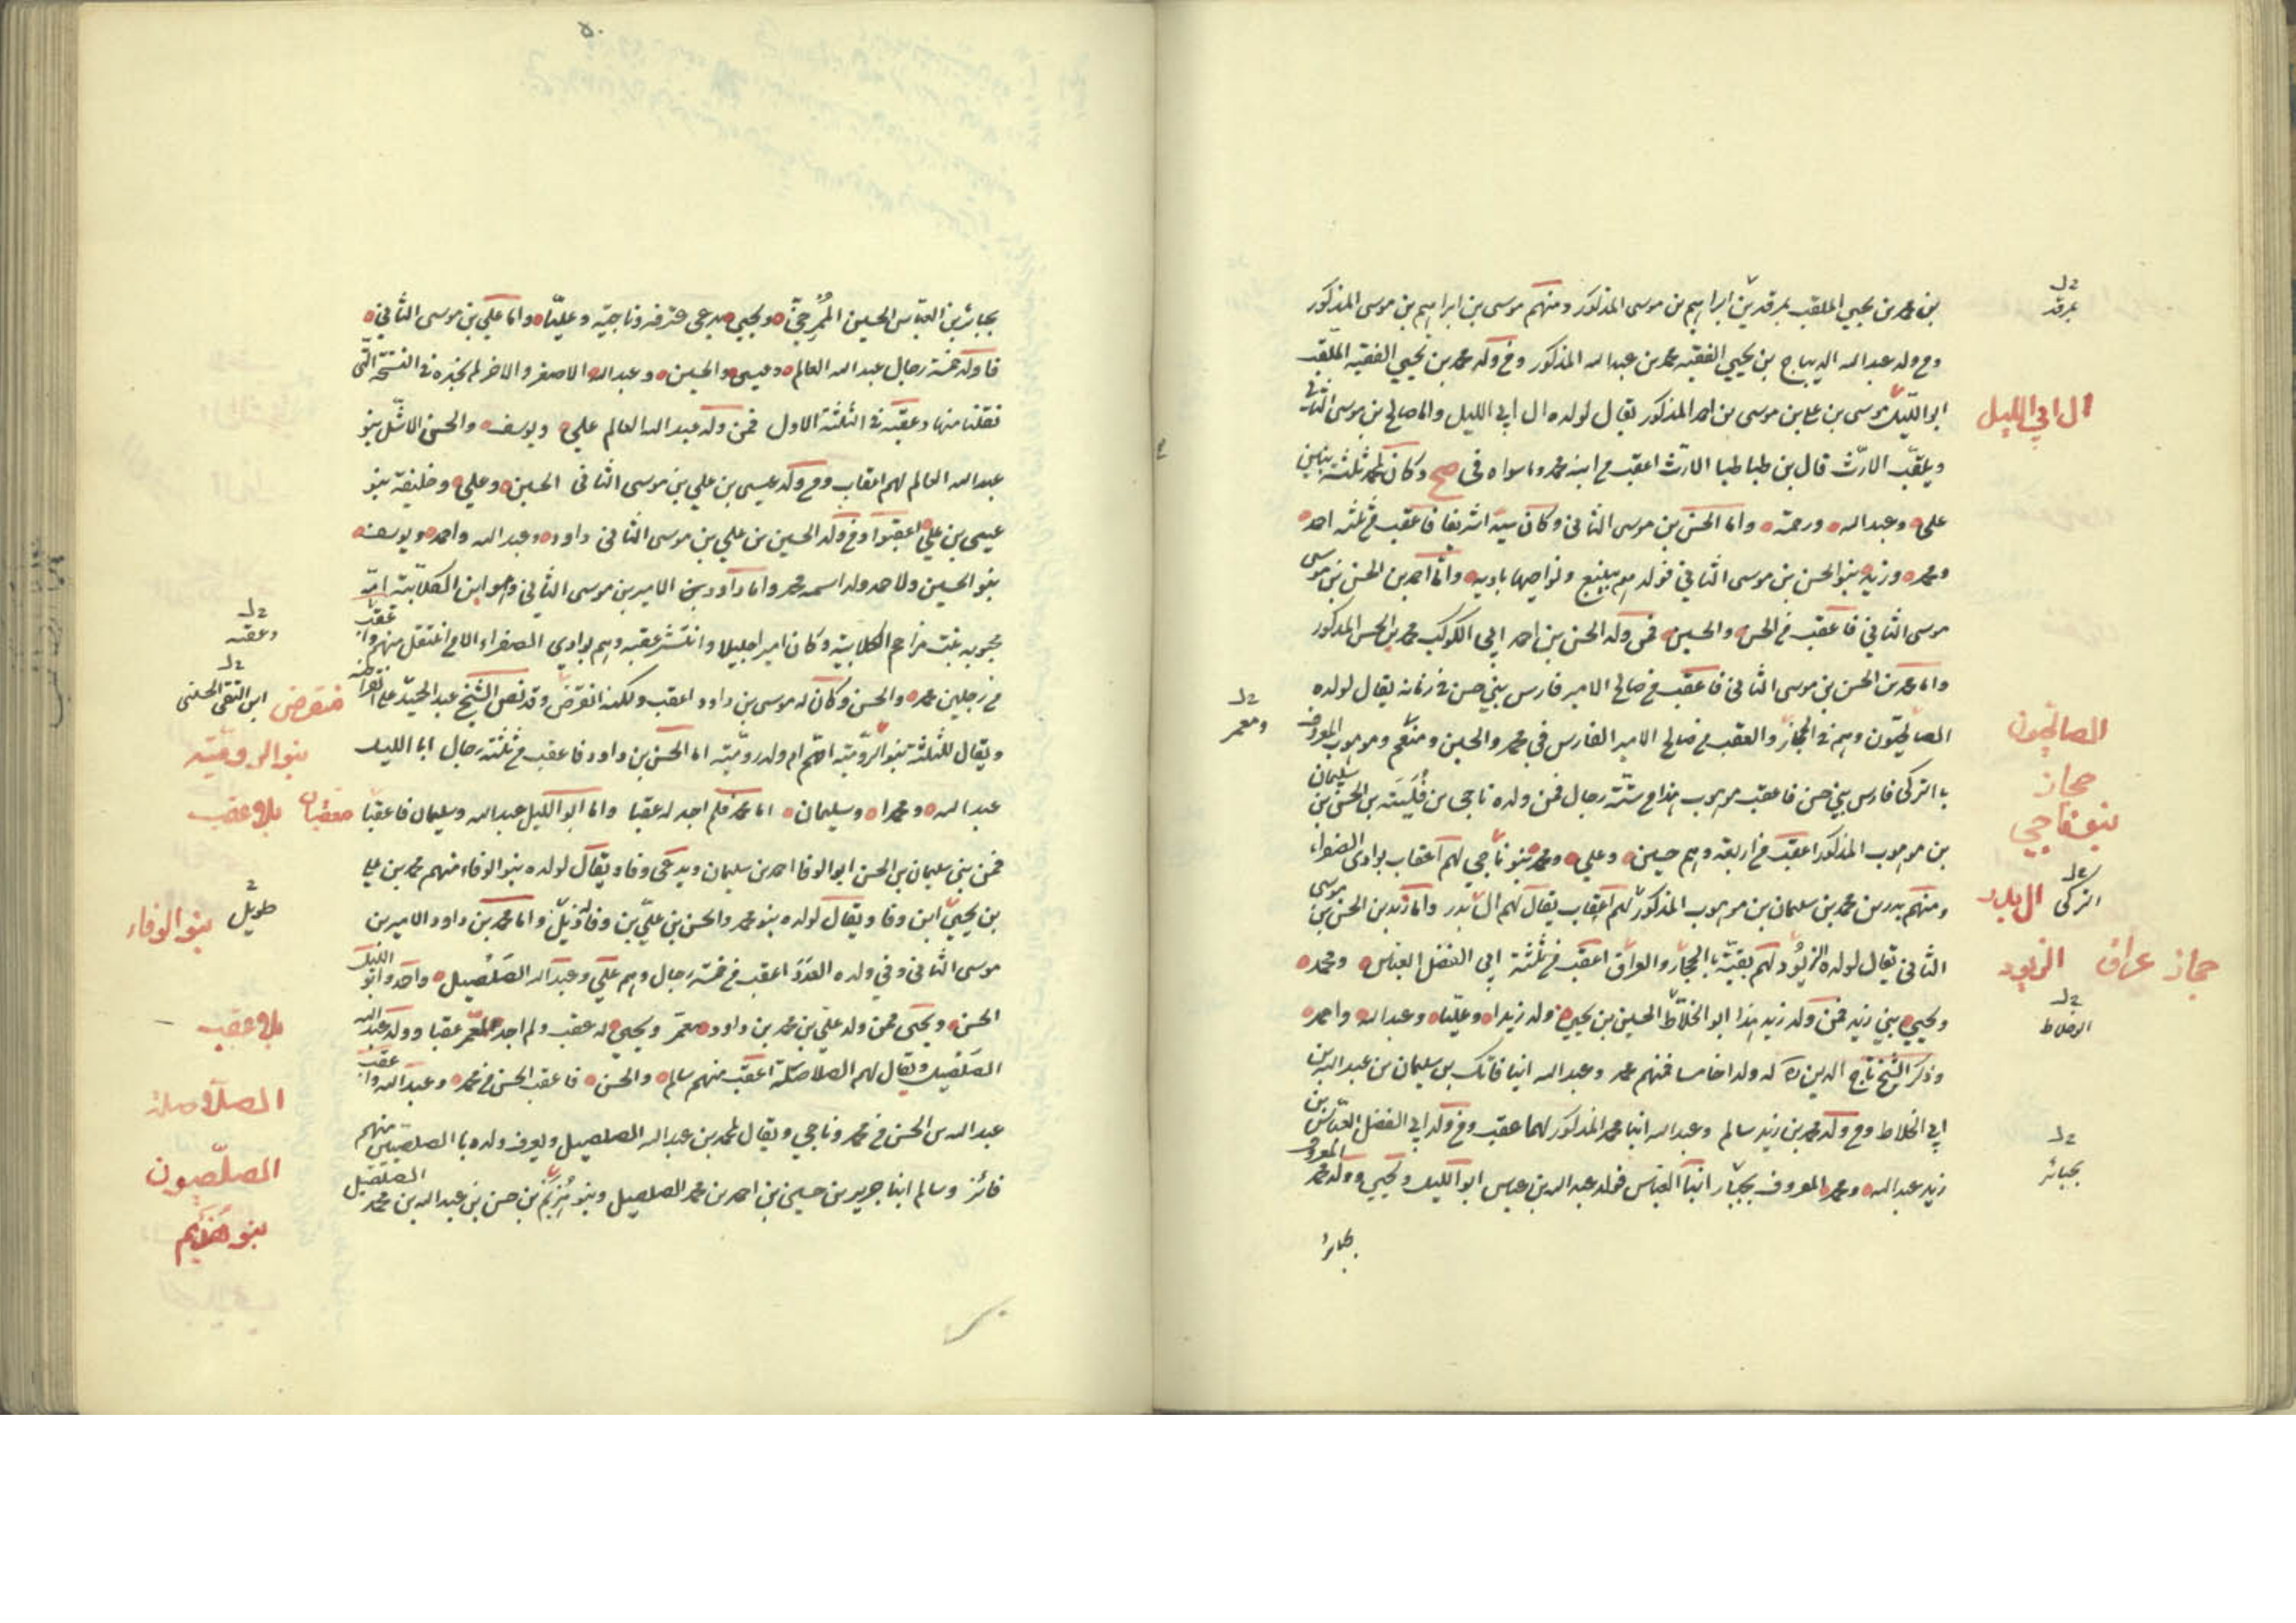 بن محمد بن يحيى الملقب بمرقد بن ابراهيم بن موسى المذكور ومنهم موسى بن ابراهيم بن موسى المذكور
ومن ولد عبد الله الديباج بن يحيى الفقيه محمد بن عبد الله المذكور ومن ولد محمد بن يحيى الفقيه الملقب
ابو الليل موسى بن علي بن موسى بن احمد المذكور يقال لولده ال ابي الليل واما صالح بن موسى الثاني
ال ابي الليل
ويلقب الارث قال بن طباطبا الارث اعقب من ابنه محمد وما سواه في صح وكان لمحمد ثلثة بنين
علي وعبد الله ورحمة واما الحسن بن موسى الثاني وكان سيدا شريفا فاعقب من ثلثه احمد
ومحمد وزيد بنو الحسن بن موسى الثاني فولد هم بينبع ونواحيها باديه واما احمد بن الحسن بن موسى
موسى الثاني فاعقب من الحسن والحسين فمن ولد الحسن بن احمد ابي الكوكب محمد بن الحسن المذكور
واما محمد بن الحسن بن موسى الثاني فاعقب من صالح الامير فارس بني حسن في زمانه يقال لولده
الصالحيون وهم في الحجاز والعقب من صالح الامير الفارس في محمد والحسين ومنعم وموهوب المعروف
الصالحيون
ومعمر
با التركي فارس بني حسن فاعقب موهوب هذا من ستة رجال فمن ولده ناجي بن فليتة بن الحسن بن سليمان
حجاز
بنو ناجي
بن موهوب المذكور اعقب من اربعة وهم حسين وعلي ومحمد بنو ناجي لهم اعقاب بوادي الصفراء
ومنهم بدر بن محمد بن سليمان بن موهوب المذكور لهم اعقاب يقال لهم ال بدر واما زيد بن الحسن بن موسى
التركي ال بدر
الثاني يقال لولده الزيود لهم بقية با الحجاز والعراق اعقب من ثلثة ابي الفضل العباس ومحمد
حجاز عراق الزيود
ويحيى بني زيد فمن ولد زيد هذا ابو الخلاط الحسين بن يحيى ولد زيدا وعليا وعبد الله واحمد
وذكر الشيخ تاج الدين ره له ولدا خامسا فمنهم محمد وعبد الله ابنا فاتك بن سليمان بن عبد الله بن
ابي الخلاط ومن ولد محمد بن زيد سالم وعبد الله ابنا محمد المذكور لهما عقب ومن ولد ابي الفضل العباس بن
زيد عبد الله ومحمد المعروف بجبائر ابنا العباس فولد عبد الله بن عباس ابو الليل ويحيى وولد محمد المعروف
بجبائر
بجبائر بن العباس الحسين المرجحي ويحيى يدعى وناجية وعليا واما علي بن موسى الثاني
فاولد خمسة رجال عبد الله العالم وعيسى والحسين وعبد الله الاصغر والاخر لم نجده في النسخة التي
نقلنا منها وعقبه في الثلثة الاول فمن ولد عبد الله العالم علي ويوسف والحسن الاشل بنو
عبد الله العالم لهم اعقاب ومن ولد عيسى بن علي بن موسى الثاني الحسين وعلي وخليفة بنو
عيسى بن علي اعقبوا ومن ولد الحسين بن علي بن موسى الثاني داود وعبد الله واحمد ويوسف
بنو الحسين ولاحمد ولد اسمه محمد واما داود بن الامير بن موسى الثاني وهو ابن الكلابية امه
محبوبة بنت مزاحم الكلابية وكان اميرا جليلا وانتشر عقبه وهم بوادي الصفراء الا من انتقل منهم
وعقبه
من رجلين محمد والحسن وكان له موسى بن داود اعقب ولكنه انقرض وقد نص الشيخ عبد الحميد على انقراضه
منقرض ابن التقي الحسني
ويقال للثلثة بنو الرومية امهم ام ولد رومية اما الحسن بن داود فاعقب من ثلثة رجال ابا الليل
بنو الرومية
عبد الله ومحمدا وسليمان اما محمد فلم اجد له عقبا واما ابو الليل عبد الله وسليمان فاعقبا
معقبان بلا عقب
فمن بني سليمان بن الحسن ابو الوفا احمد بن سليمان ويدعى وفا ويقال لولده بنو الوفاء منهم محمد بن علي
بن يحيى ابن وفا ويقال لولده بنو محمد والحسن بن علي بن وفا واما محمد بن داود الامير بن
طويل بنو الوفاء
موسى الثاني وفي ولده العدد اعقب من خمسة رجال وهم علي وعبد الله الصلصيل واحمد وابو الليل
الحسن ويحيى فمن ولد علي بن محمد بن داود معمر ويحيى له عقب ولم اجد لمعمر عقبا وولد عبد الله
بلا عقب
الصلصيل ويقال لهم الصلاصلة اعقب منهم سالم والحسن فاعقب الحسن من محمد وعبد الله
الصلاصلة
عبد الله بن الحسن من محمد وناجي ويقال لمحمد بن عبد الله الصلصيل ويعرف ولده با الصلصيين منهم
الصلصيون
فائز وسالم ابنا جرير بن حسين بن احمد بن محمد الصلصيل وبنو هزيم بن حسن بن عبد الله بن محمد الصلصيل
بنو هزيم